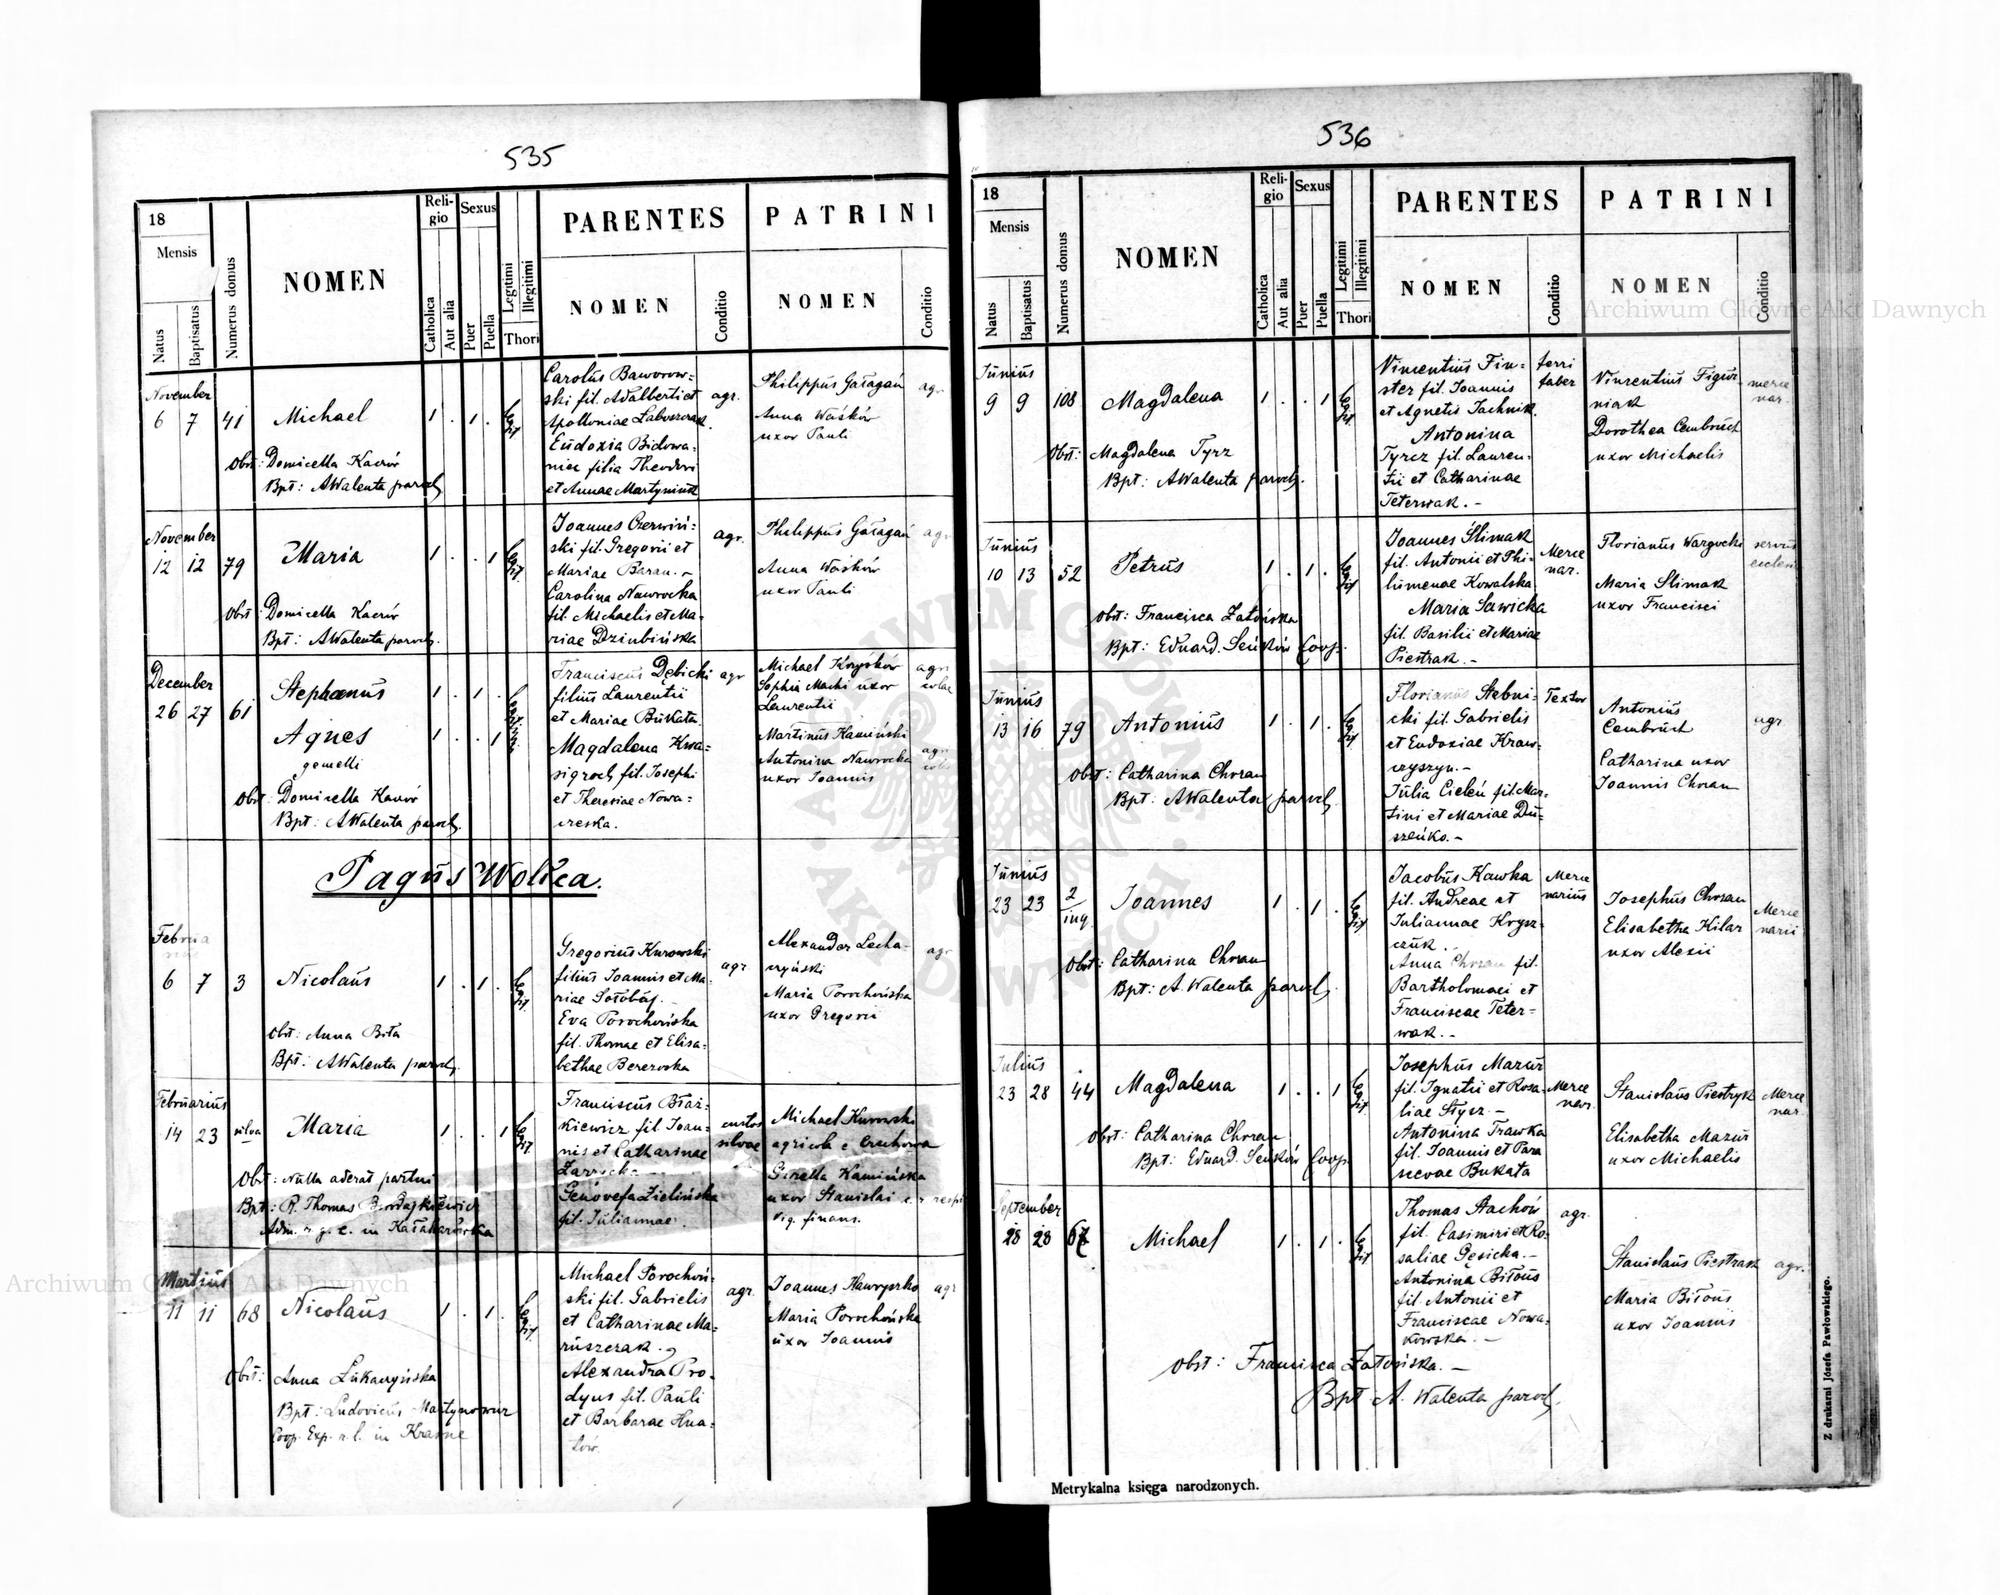 535
18
Mensis
Natus
Baptisatus
Numerus domus
NOMEN
Religio
Catholica
Aut alia
Sexus
Puer
Puella
Legitimi
Illegitimi
Thori
PARENTES
NOMEN
Conditio
PATRINI
NOMEN
Conditio
November
6 7 41 Michael 1 . 1 . legit.
Obst: Domicella Kaczór
Bpt: AWalenta paroch.
Carolus Baworow-
ski fil. Adalberti et
Apolloniae Labuszczak.
Eudoxia Bidowa-
niec filia Theodori
et Annae Martyniuk
agr.
Philippus Gałagan
Anna Waśków
uxor Pauli
agr.
November
12 12 79 Maria 1 . . 1 legit.
Obst: Domicella Kaczór
Bpt: AWalenta paroch.
Joannes Czerwiń-
ski fil. Gregorii et
Mariae Baran. -
Carolina Nawrocka
fil. Michaelis et Ma-
riae Dziubińska
agr.
Philippus Gałagan
Anna Waśków
uxor Pauli
agr.
December
26 27 61 Stephanus 1 . 1 .
Agnes 1 . . 1
gemelli
Obst: Domicella Kaczór
Bpt: AWalenta paroch.
Franciscus Dębicki
filius Laurentii
et Mariae Bukata.
Magdalena Kwa-
sigroch fil. Josephi
et Theresiae Nowa-
czeska.
agr
Michael Krzyśków
Sophia Macki uxor
Laurentii
Martinus Kamiński
Antonina Nawrocka
uxor Joannis
agri
colae
agri
colae
Pagus Wolica.
Februa
rius
6 7 3 Nicolaus 1 . 1 . legit.
Obst: Anna Biła
Bpt: AWalenta paroch.
Gregorius Kurowski
filius Joannis et Ma-
riae Sołobaj. -
Eva Porochońska
fil. Thomae et Elisa-
bethae Berezoska
agr
Alexander Lecha-
czyński
Maria Porochońska
uxor Gregorii
agr
Februarius
14 23 silva Maria 1 . . 1 legit.
Obst: Nulla aderat partui
Bpt: R. Thomas Bordajkiewicz
Adm. r. g. c. in Kałaharówka
Franciscus Błaż-
kiewicz fil. Joan-
nis et Catharinae
Zarycka -
Genovefa Zielińska
fil. Juliannae.
custos
silvae
Michael Kurowski
agricola e Czuchowa
Gizella Kamińska
uxor Stanislai c. r. resp.
vig. finans.
Martius
11 11 68 Nicolaus 1 . 1 . legit.
Obst: Anna Lukaczyńska
Bpt: Ludovicus Martynowicz
Coop. Exp. r. l. in Krasne
Michael Porochoń-
ski fil. Gabrielis
et Catharinae Ma-
ruszczak.
Alexandra Pro-
dyus fil. Pauli
et Barbarae Hna-
tów.
agr.
Joannes Hawryszko
Maria Porochońska
uxor Joannis
agr
536
18
Mensis
Natus
Baptisatus
Numerus domus
NOMEN
Religio
Catholica
Aut alia
Sexus
Puer
Puella
Legitimi
Illegitimi
Thori
PARENTES
NOMEN
Conditio
PATRINI
NOMEN
Conditio
Junius
9 9 108 Magdalena 1 . . 1 legit.
Obst: Magdalena Tyrz
Bpt: AWalenta paroch.
Vincentius Fin-
ster fil. Joannis
et Agnetis Jachnik.
Antonina
Tyrcz fil. Lauren-
tii et Catharinae
Teterwak. -
ferri
faber
Vincentius Figur-
niak
Dorothea Cembruch
uxor Michaelis
merce
nar.
Junius
10 13 52 Petrus 1 . 1 . legit
Obst: Francisca Zatońska
Bpt: Eduard. Seńków Coop.
Joannes Slimak
fil. Antonii et Phi-
lumenae Kowalska
Maria Sawicka
fil. Basilii et Mariae
Piestrak. -
Merce
nar.
Florianus Wargocki
Maria Slimak
uxor Francisci
servus
eccles.
Junius
13 16 79 Antonius 1 . 1 . legit
Obst: Catharina Chrzan
Bpt: AWalenta paroch.
Florianus Stebni-
cki fil. Gabrielis
et Eudoxiae Kraw-
czyszyn. -
Julia Cieleń fil. Mar-
tini et Mariae Du-
szeńko. -
Textor
Antonius
Cembruch
Catharina uxor
Joannis Chrzan
agr
Junius
23 23 2/inq. Joannes 1 . 1 . legit
Obst: Catharina Chrzan
Bpt: A. Walenta paroch.
Jacobus Kawka
fil. Andreae et
Juliannae Krysz-
czuk. -
Anna Chrzan fil.
Bartholomaei et
Franciscae Teter-
wak. -
Merce
narius
Josephus Chrzan
Elisabetha Kilar
uxor Alexii
Merce
narii
Julius
23 28 44 Magdalena 1 . . 1 legit
Obst: Catharina Chrzan
Bpt: Eduard. Seńków Coop.
Josephus Mazur
fil. Ignatii et Rosa-
liae Stysz -
Antonina Trawka
fil. Joannis et Para
scevae Bukata
Merce
nar.
Stanislaus Piestrzyk
Elisabetha Mazur
uxor Michaelis
Merce
nar.
September
28 28 67 Michael 1 . 1 . legit
Thomas Stachów
fil. Casimiri et Ro-
saliae Gęsicka. -
Antonina Biłous
fil. Antonii et
Franciscae Nowa-
kowska. -
agr.
Stanislaus Piestrak
Maria Biłous
uxor Joannis
agr.
Obst: Francisca Zatońska. -
Bpt A. Walenta paroch.
Metrykalna księga narodzonych.
Z drukarni Józefa Pawłowskiego.
Archiwum Główne Akt Dawnych
Archiwum Główne Akt Dawnych
ARCHIWUM GŁÓWNE AKT DAWNYCH